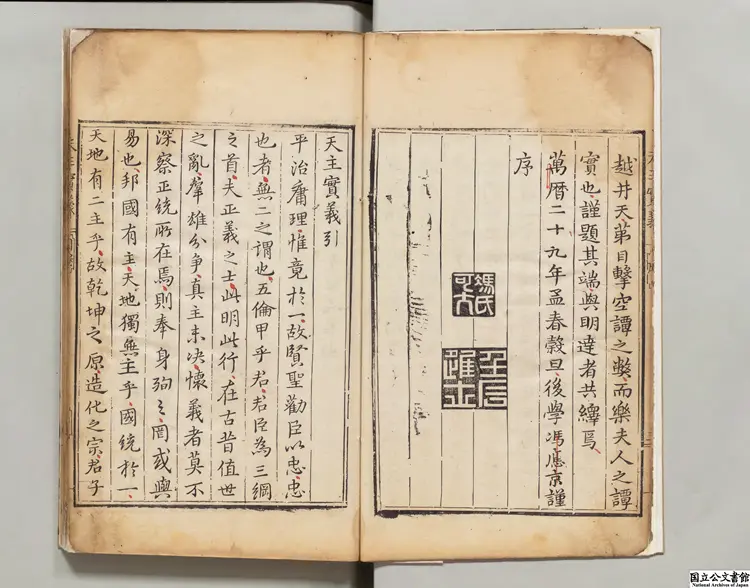 越井天第目擊空譚之弊而樂夫人之譚
實也謹題其端與明達者共繹焉
萬曆二十九年孟春穀旦後學馮應京謹
序
馮氏
可大
天主實義引
平治庸理惟竟於一故賢聖勸臣以忠忠
也者無二之謂也五倫甲乎君君臣為三綱
之首夫正義之士此明此行在古昔值世
之亂羣雄分爭真主未決懷義者莫不
深察正統所在焉則奉身殉之罔或與
易也邦國有主天地獨無主乎國統於一
天地有二主乎故乾坤之原造化之宗君子
国立公文書館
National Archives of Japan